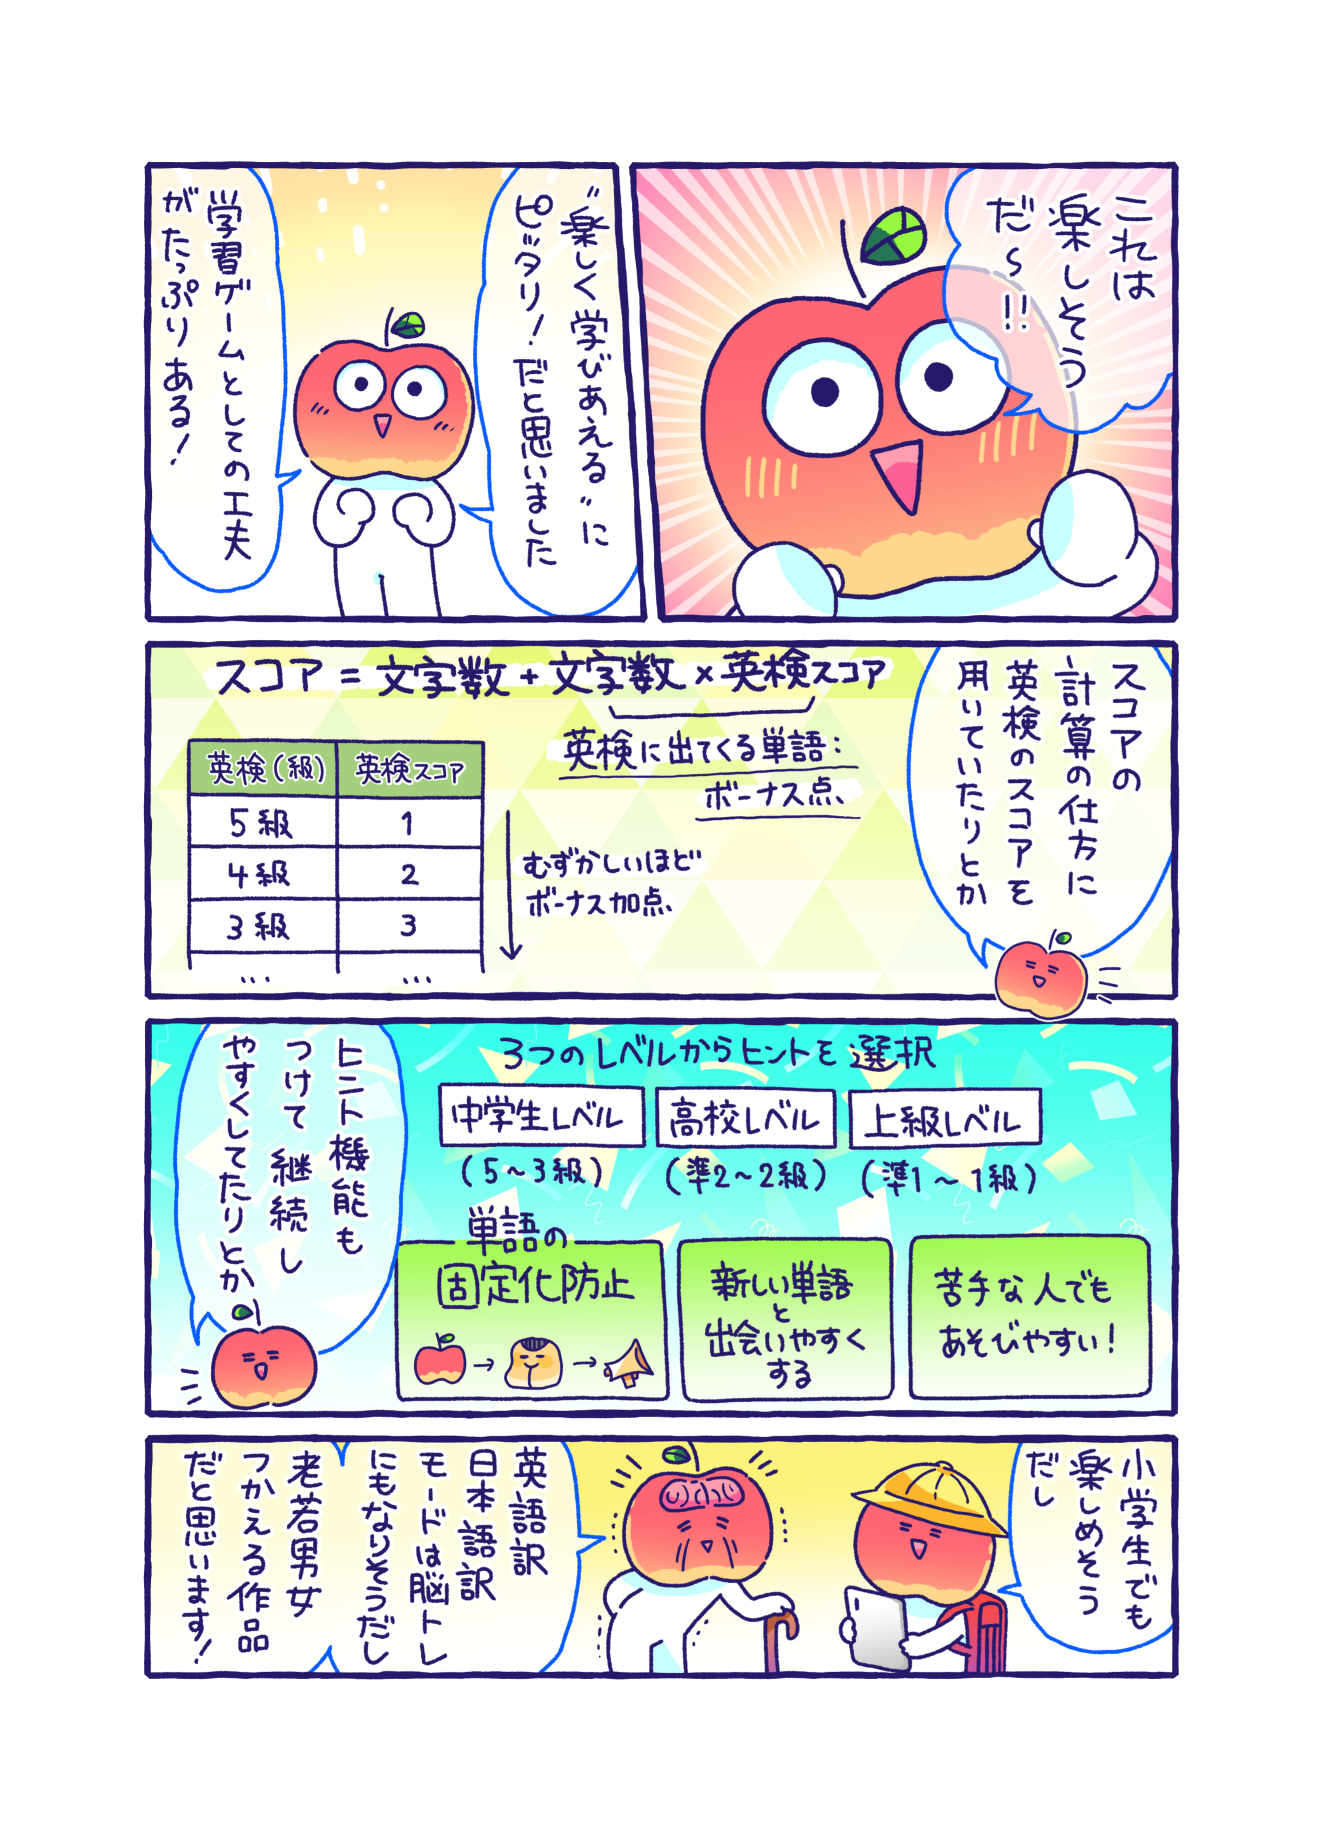 これは
楽しそう
だ〜!!
“楽しく学びあえる”に
ピッタリ！だと思いました
学習ゲームとしての工夫
がたっぷりある！
スコアの
計算の仕方に
英検のスコアを
用いていたりとか
スコア＝文字数＋文字数×英検スコア
英検に出てくる単語：
ボーナス点
英検（級） 英検スコア
5級 1
4級 2
3級 3
… …
むずかしいほど
ボーナス加点
3つのレベルからヒントを選択
中学生レベル 高校レベル 上級レベル
（5〜3級） （準2〜2級） （準1〜1級）
ヒント機能も
つけて継続し
やすくしてたりとか
単語の
固定化防止
新しい単語
と
出会いやすく
する
苦手な人でも
あそびやすい！
小学生でも
楽しめそう
だし
英語訳
日本語訳
モードは脳トレ
にもなりそうだし
老若男女
つかえる作品
だと思います！